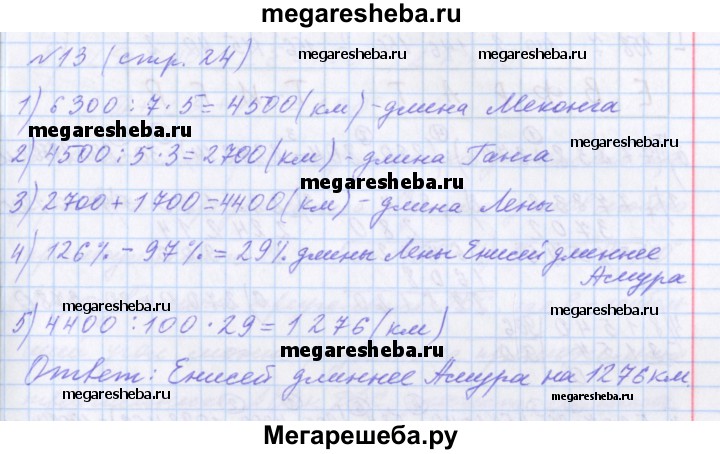 megaresheba.ru
№13 (стр. 24)
megaresheba.ru
megaresheba.ru
1) 6300 : 7 · 5 = 4500 (км) - длина Меконга
megaresheba.ru
2) 4500 : 5 · 3 = 2700 (км) - длина Ганга
megaresheba.ru
3) 2700 + 1700 = 4400 (км) - длина Лены
4) 126% - 97% = 29% длины Лены Енисей длиннее
Амура
megaresheba.ru
megaresheba.ru
5) 4400 : 100 · 29 = 1276 (км)
megaresheba.ru
Ответ: Енисей длиннее Амура на 1276 км.
megaresheba.ru
megaresheba.ru
Мегарешеба.ру